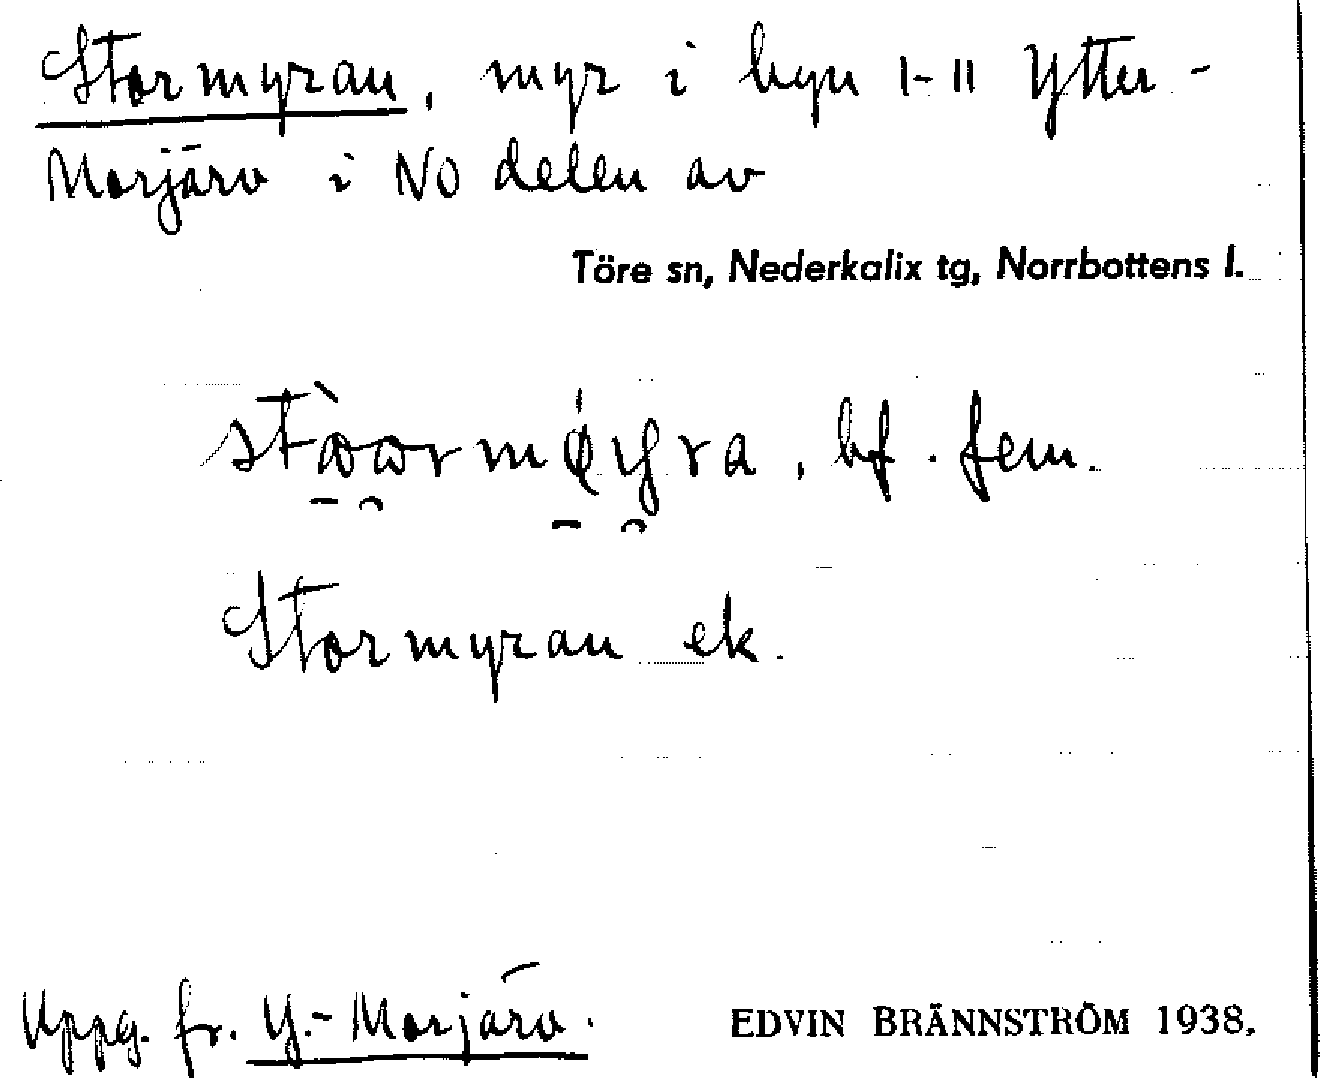 Stormyran, myr i byn I-II Ytter-
Morjärv i NO delen av
Töre sn, Nederkalix tg, Norrbottens l.
bf. fem.
Stormyran ek.
Uppg. fr. Y.-Morjärv.
EDVIN BRÄNNSTRÖM 1938.